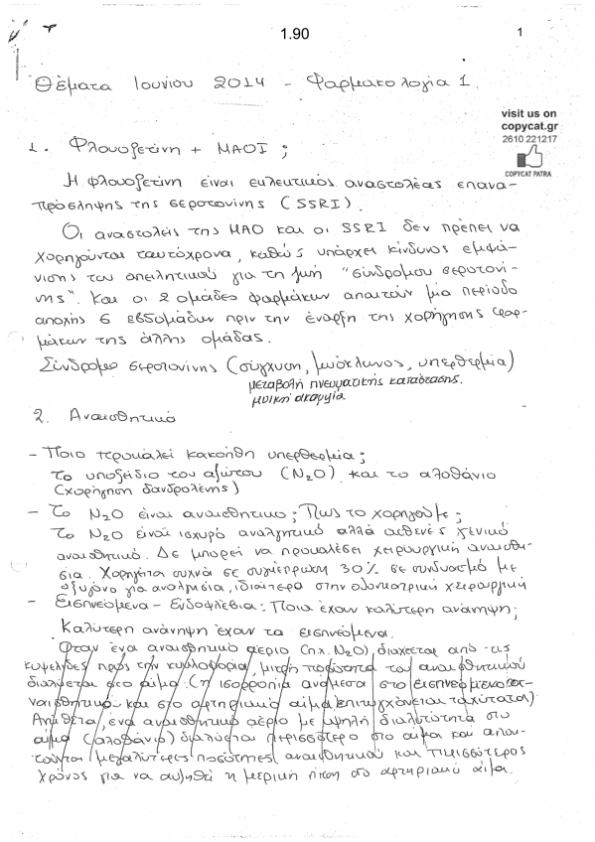 1.90
1
Θέματα Ιουνίου 2014 - Φαρμακολογία 1.
visit us on
copycat.gr
2610 221217
COPYCAT PATRA
1. Φλουοξετίνη + ΜΑΟΙ ;
Η φλουοξετίνη είναι εκλεκτικός αναστολέας επανα-
πρόσληψης της σεροτονίνης (SSRI).
Οι αναστολείς της ΜΑΟ και οι SSRI δεν πρέπει να
χορηγούνται ταυτόχρονα, καθώς υπάρχει κίνδυνος εμφά-
νισης του απειλητικού για τη ζωή "σύνδρομου σεροτονί-
νης". Και οι 2 ομάδες φαρμάκων απαιτούν μία περίοδο
αποχής 6 εβδομάδων πριν την έναρξη της χορήγησης φαρ-
μάκων της άλλης ομάδας.
Σύνδρομο σεροτονίνης (σύγχυση, μυόκλονος, υπερθερμία)
μεταβολή πνευματικής κατάστασης.
μυική ακαμψία
2. Αναισθητικά
- Ποιο προκαλεί κακοήθη υπερθερμία;
Το υποξείδιο του αζώτου (N₂O) και το αλοθάνιο
(χορήγηση δανδρολένης)
- Το N₂O είναι αναισθητικο; Πως το χορηγούμε;
Το N₂O είναι ισχυρό αναλγητικό αλλά ασθενές γενικό
αναισθητικό. Δε μπορεί να προκαλέσει χειρουργική αναισθη-
σία. Χορηγείται συχνά σε συγκέντρωση 30% σε συνδυασμό με
οξυγόνο για αναλγησία, ιδιαίτερα στην οδοντιατρική χειρουργική
- Εισπνεόμενα - Ενδοφλέβια: Ποια έχουν καλύτερη ανάνηψη;
Καλύτερη ανάνηψη έχουν τα εισπνεόμενα.
Όταν ένα αναισθητικό αέριο (πχ. N₂O) διαχέεται από τις
κυψελίδες προς την κυκλοφορία, μικρή ποσότητα του αναισθητικού
διαλύεται στο αίμα (η ισορροπία ανάμεσα στο εισπνεόμενο α-
ναισθητικό και στο αρτηριακό αίμα επιτυγχάνεται ταχύτατα)
Αντίθετα, ένα αναισθητικό αέριο με υψηλή διαλυτότητα στο
αίμα (αλοθάνιο) διαλύεται περισσότερο στο αίμα και απαι-
τούνται μεγαλύτερες ποσότητες αναισθητικού και περισσότερος
χρόνος για να αυξηθεί η μερική πίεση στο αρτηριακό αίμα.